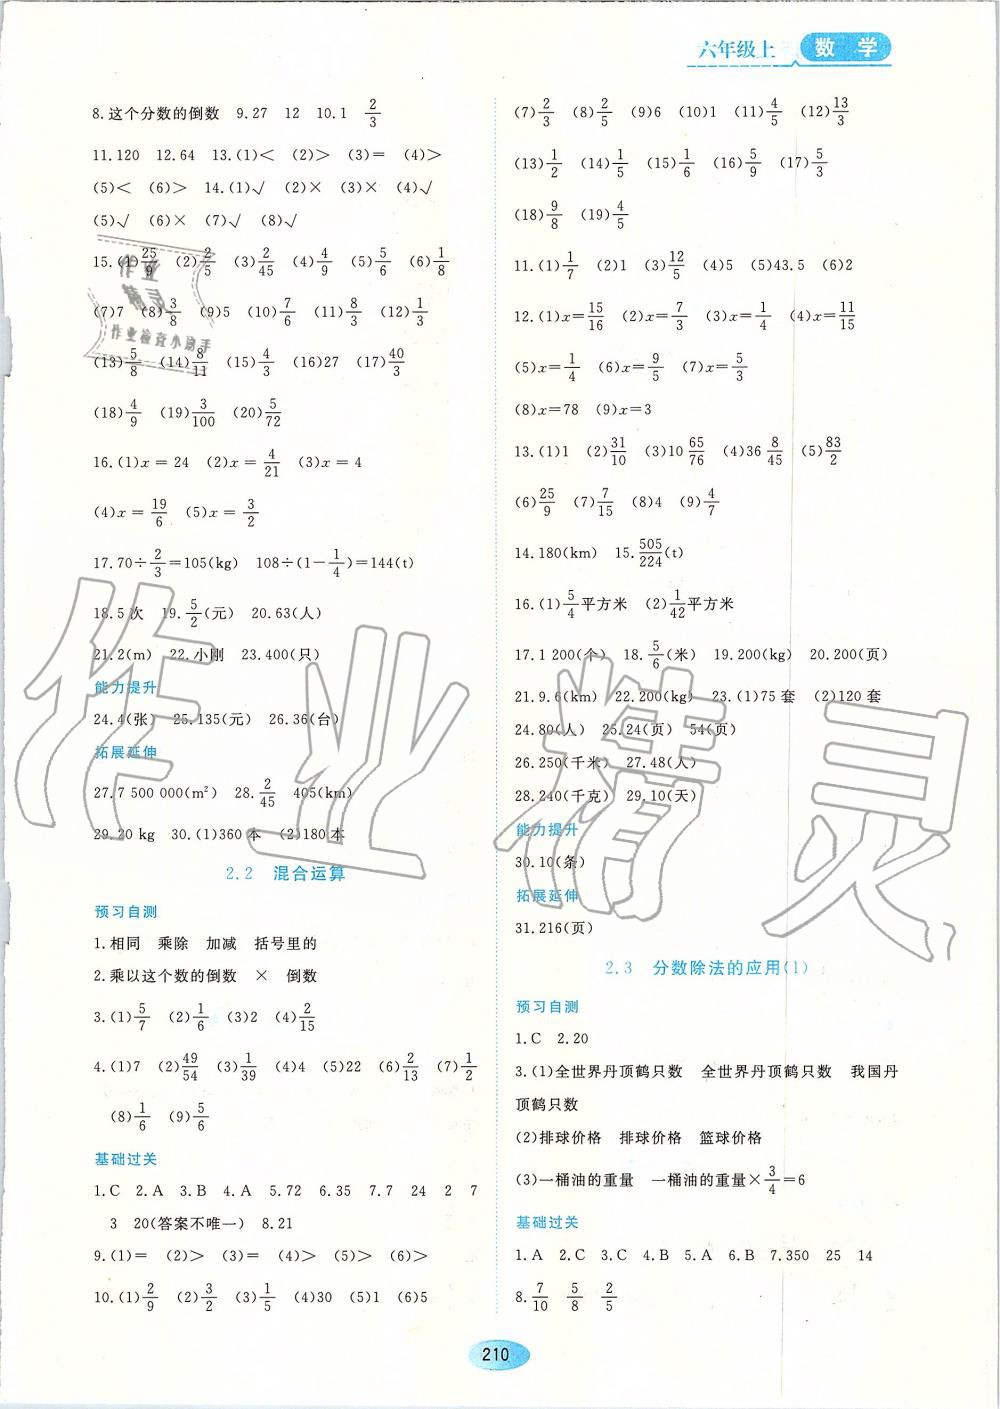 六年级上 数学
8.这个分数的倒数 9.27 12 10.1 2/3
11.120 12.64 13.(1)< (2)> (3)= (4)>
(5)< (6)> 14.(1)√ (2)× (3)× (4)√
(5)√ (6)× (7)√ (8)√
15.(1)25/9 (2)2/5 (3)2/45 (4)4/9 (5)5/6 (6)1/8
(7)7 (8)3/8 (9)5 (10)7/6 (11)8/3 (12)1/3
(13)5/8 (14)8/11 (15)4/3 (16)27 (17)40/3
(18)4/9 (19)3/100 (20)5/72
16.(1)x=24 (2)x=4/21 (3)x=4
(4)x=19/6 (5)x=3/2
17.70÷2/3=105(kg) 108÷(1-1/4)=144(t)
18.5次 19.5/2(元) 20.63(人)
21.2(m) 22.小刚 23.400(只)
能力提升
24.4(张) 25.135(元) 26.36(台)
拓展延伸
27.7 500 000(m²) 28.2/45 405(km)
29.20 kg 30.(1)360本 (2)180本
2.2 混合运算
预习自测
1.相同 乘除 加减 括号里的
2.乘以这个数的倒数 × 倒数
3.(1)5/7 (2)1/6 (3)2 (4)2/15
4.(1)7 (2)49/54 (3)1/39 (4)4 (5)22 (6)2/13 (7)1/2
(8)1/6 (9)5/6
基础过关
1.C 2.A 3.B 4.A 5.72 6.35 7.7 24 2 7
3 20(答案不唯一) 8.21
9.(1)= (2)> (3)= (4)> (5)> (6)>
10.(1)2/9 (2)3/2 (3)1/5 (4)30 (5)1 (6)5
(7)2/3 (8)2/5 (9)6 (10)1 (11)4/5 (12)13/3
(13)1/2 (14)1/5 (15)1/6 (16)5/9 (17)5/3
(18)9/8 (19)4/5
11.(1)1/7 (2)1 (3)12/5 (4)5 (5)43.5 (6)2
12.(1)x=15/16 (2)x=7/3 (3)x=1/4 (4)x=11/15
(5)x=1/4 (6)x=9/5 (7)x=5/3
(8)x=78 (9)x=3
13.(1)1 (2)31/10 (3)10 65/76 (4)36 8/45 (5)83/2
(6)25/9 (7)7/15 (8)4 (9)4/7
14.180(km) 15.505/224(t)
16.(1)5/4平方米 (2)1/42平方米
17.1 200(个) 18.5/6(米) 19.200(kg) 20.200(页)
21.9.6(km) 22.200(kg) 23.(1)75套 (2)120套
24.80(人) 25.24(页) 54(页)
26.250(千米) 27.48(人)
28.240(千克) 29.10(天)
能力提升
30.10(条)
拓展延伸
31.216(页)
2.3 分数除法的应用(1)
预习自测
1.C 2.20
3.(1)全世界丹顶鹤只数 全世界丹顶鹤只数 我国丹
顶鹤只数
(2)排球价格 排球价格 篮球价格
(3)一桶油的重量 一桶油的重量×3/4=6
基础过关
1.A 2.C 3.C 4.B 5.A 6.B 7.350 25 14
8.7/10 5/8 2/5
210
作业精灵
作业检查小助手
作业精灵